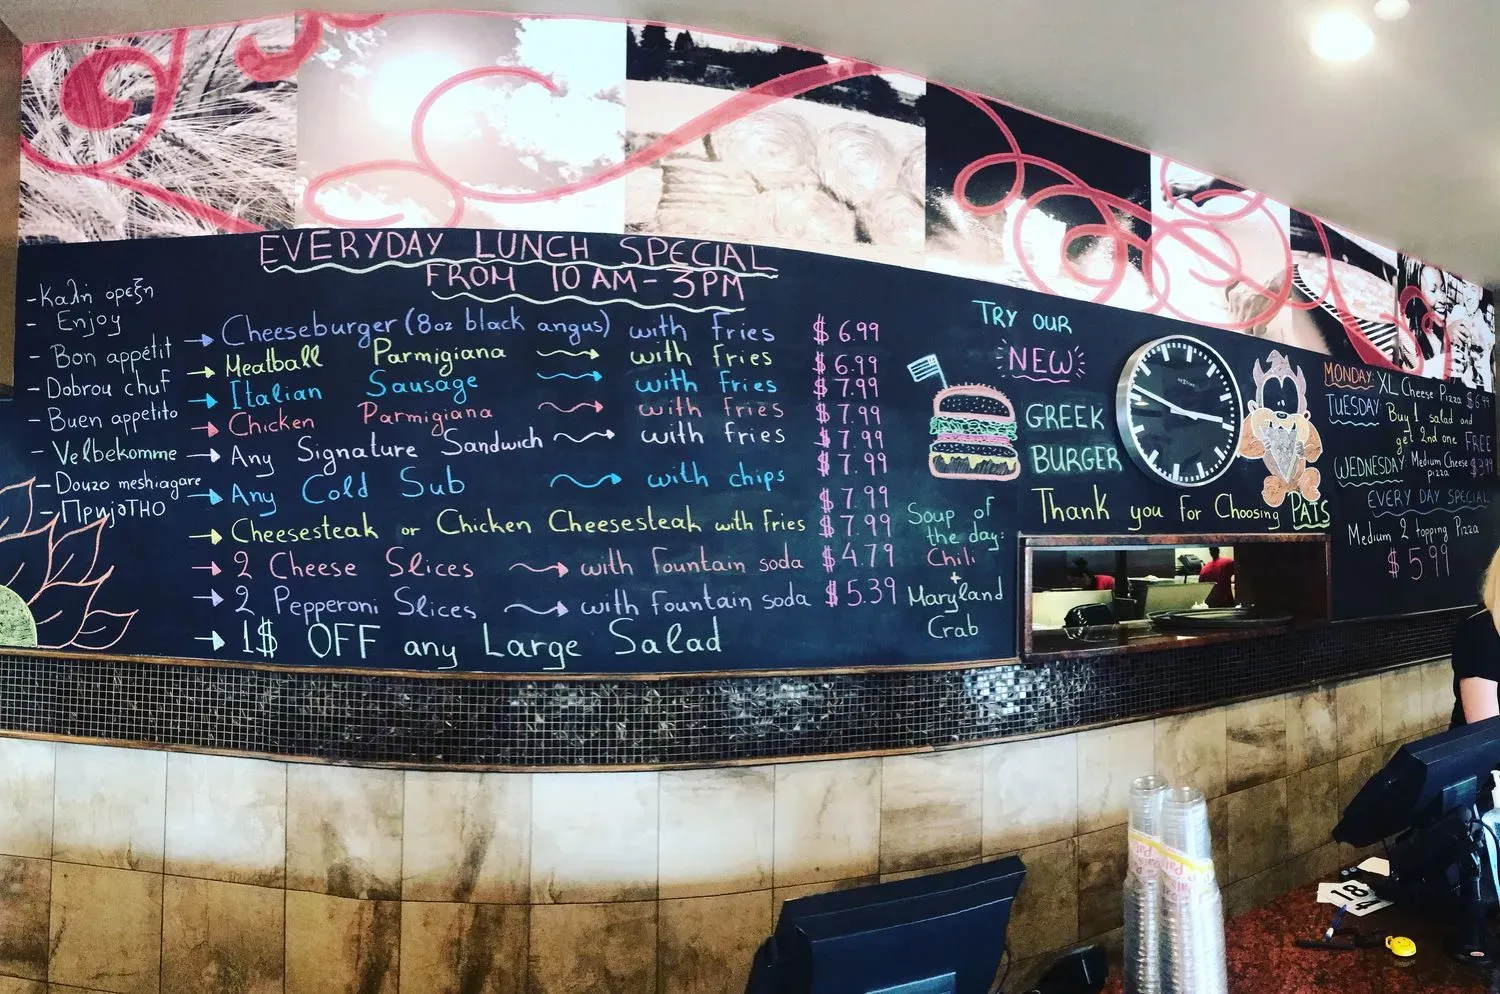 EVERYDAY LUNCH SPECIAL
FROM 10 AM - 3PM
- Καλή όρεξη
- Enjoy
- Bon appétit
- Dobrou chuť
- Buen appetito
- Velbekomme
- Douzo meshiagare
- ПријатНО
→ Cheeseburger (8oz black angus) with Fries $ 6.99
→ Meatball Parmigiana with Fries $ 6.99
→ Italian Sausage with Fries $ 7.99
→ Chicken Parmigiana with Fries $ 7.99
→ Any Signature Sandwich with Fries $ 7.99
$ 7.99
→ Any Cold Sub with chips $ 7.99
→ Cheesesteak or Chicken Cheesesteak with Fries $ 7.99
→ 2 Cheese Slices with Fountain soda $ 4.79
→ 2 Pepperoni Slices with Fountain soda $ 5.39
→ 1$ OFF any Large Salad
TRY OUR
NEW
GREEK
BURGER
Thank you For Choosing PATS
Soup of
the day:
Chili
+
Maryland
Crab
MONDAY: XL Cheese Pizza $6.99
TUESDAY: Buy 1 salad and
get 2nd one FREE
WEDNESDAY: Medium Cheese
pizza $3.99
EVERY DAY SPECIAL
Medium 2 topping Pizza
$ 5.99
18